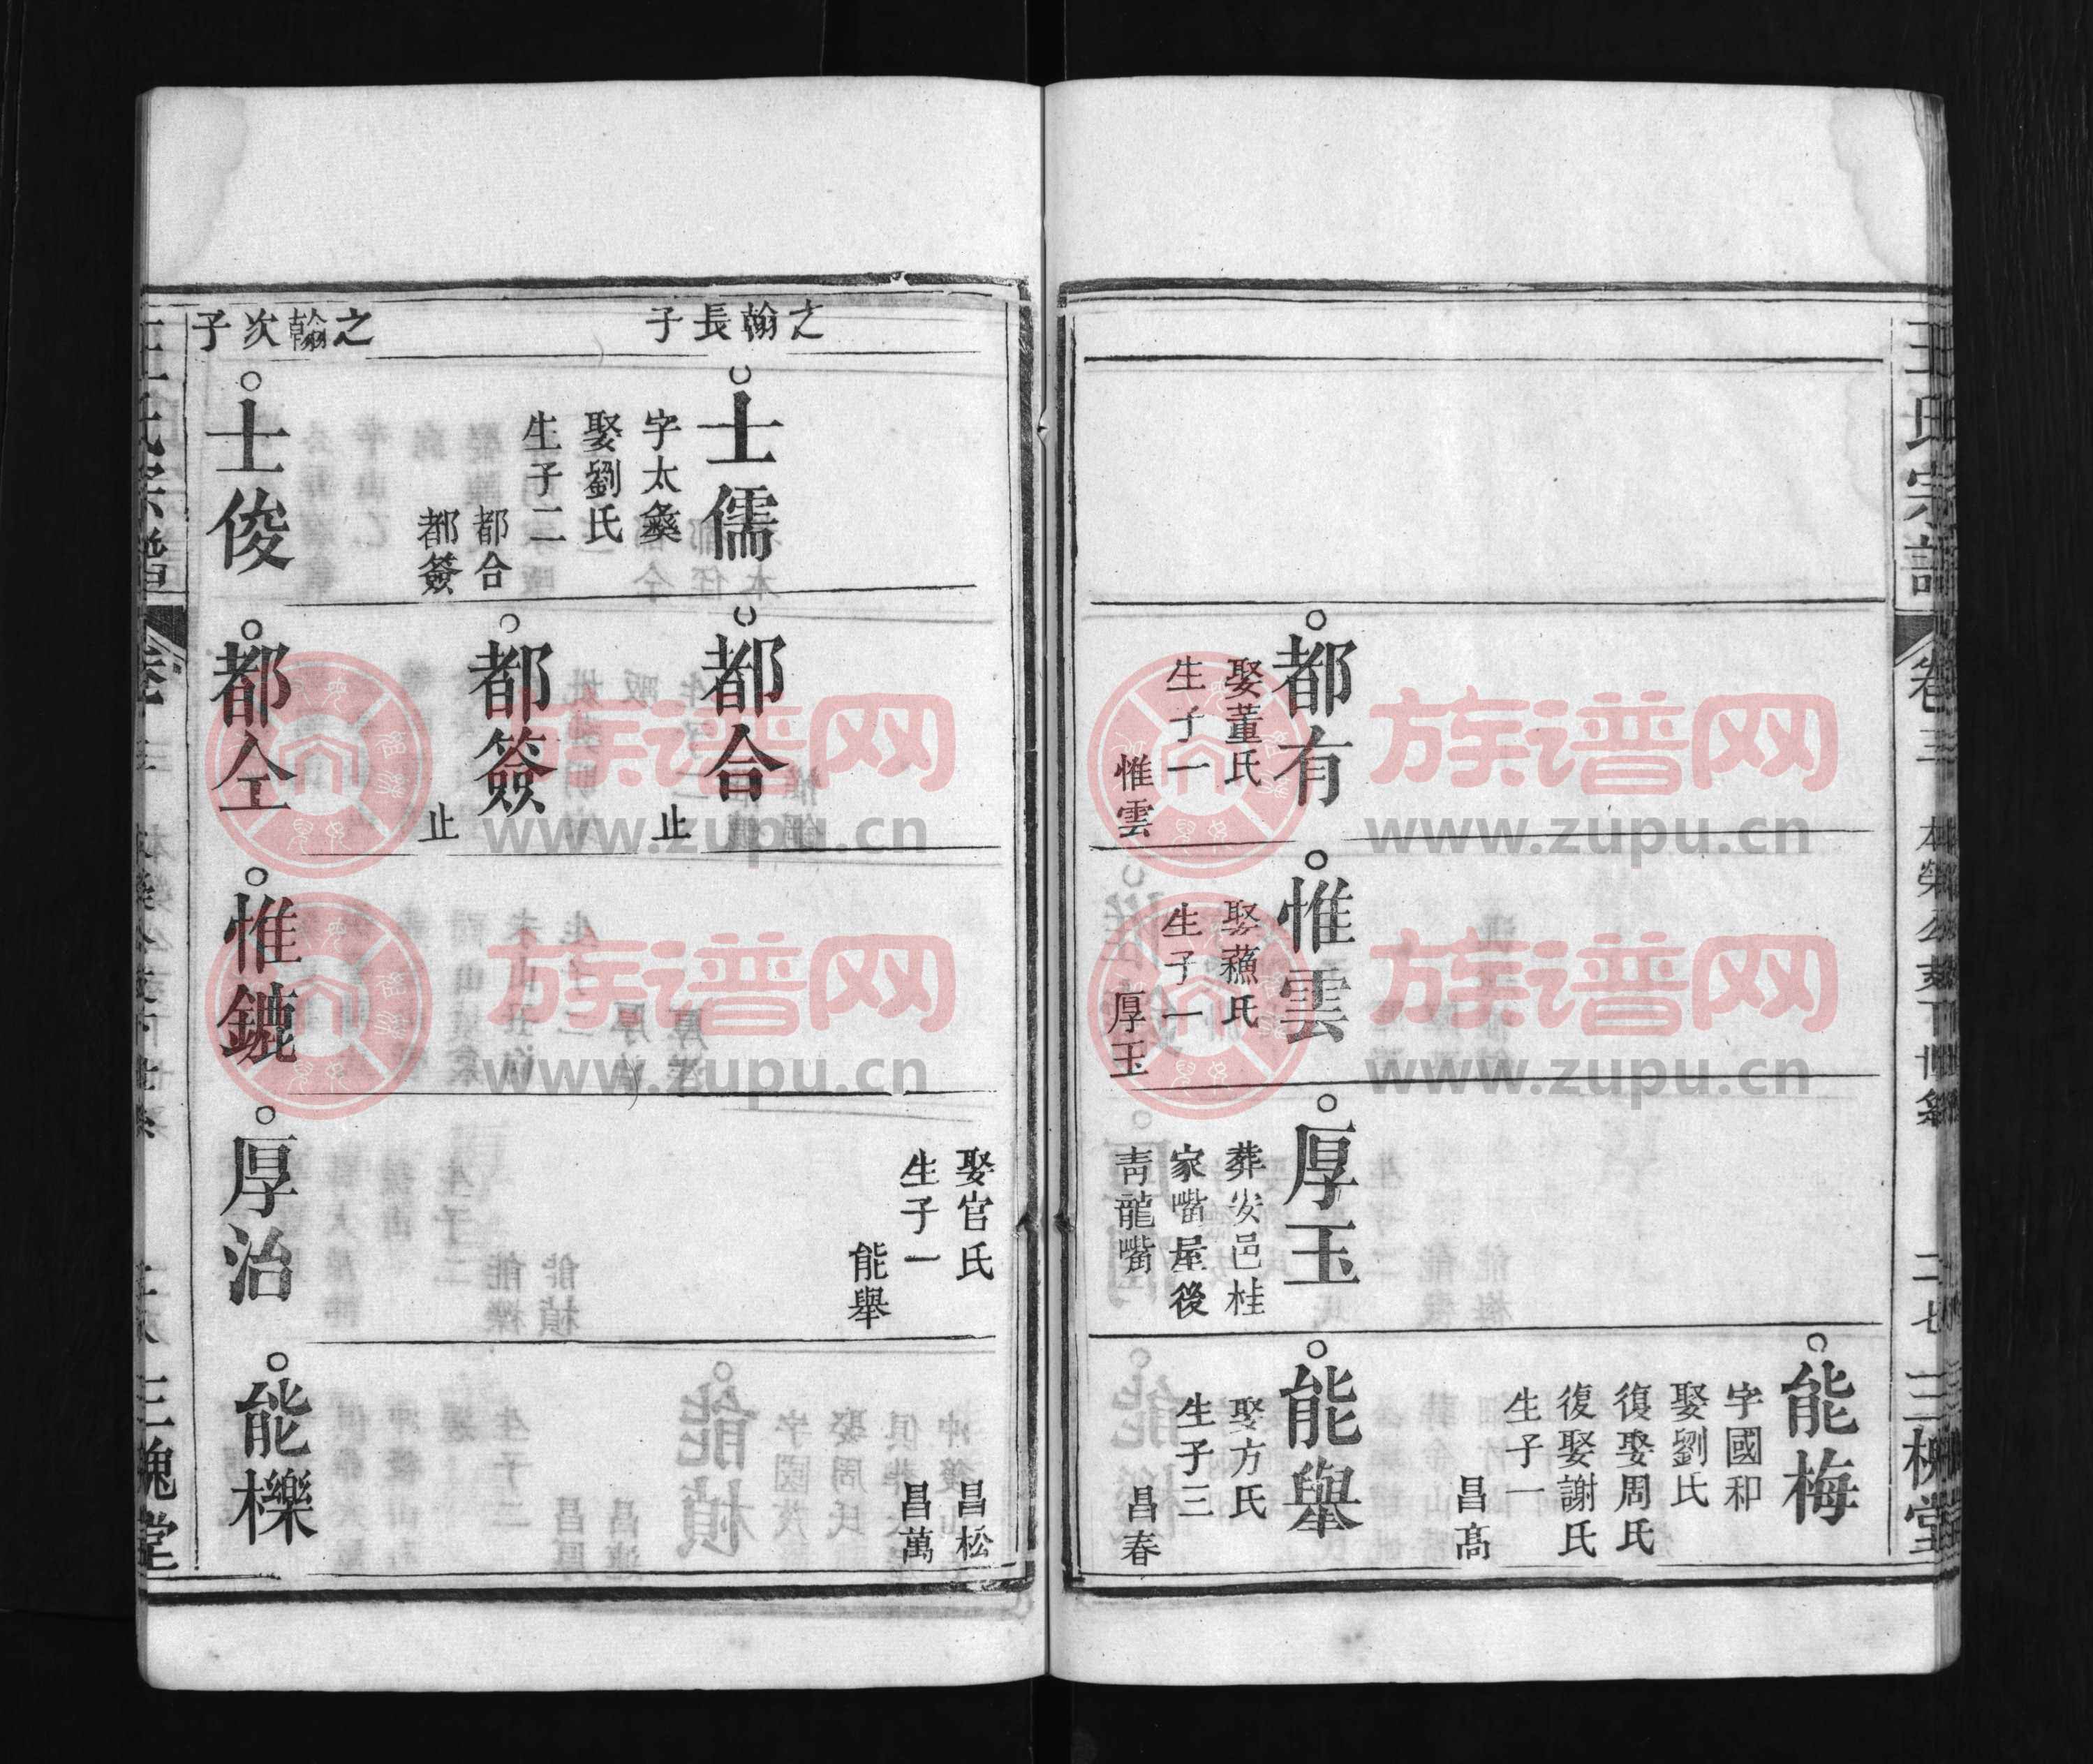 王氏宗譜
卷三
本榮公支下世系
二七
三槐堂
能梅
字國和
娶劉氏
復娶周氏
復娶謝氏
生子一
昌高
都有
娶董氏
生子一
惟雲
惟雲
娶蘓氏
生子一
厚玉
厚玉
葬安邑桂
家嘴屋後
青龍嘴
能舉
娶方氏
生子三
昌春
昌松
昌萬
娶官氏
生子一
能舉
之翰長子
士儒
字太彝
娶劉氏
生子二
都合
都簽
都合
止
都簽
止
之翰次子
士俊
都仝
惟鏕
厚治
能櫟
三槐堂
族谱网
www.zupu.cn
族谱网
www.zupu.cn
族谱网
www.zupu.cn
族谱网
www.zupu.cn